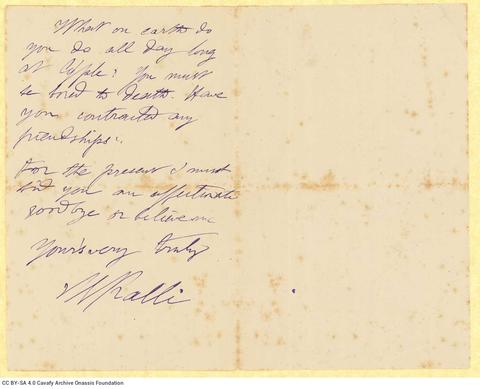 What on earth do
you do all day long
at Cple? You must
be bored to death. Have
you contracted any
friendships?
For the present I must
bid you an affectionate
goodbye or believe me
Yours very truly
Ralli
CC BY-SA 4.0 Cavafy Archive Onassis Foundation